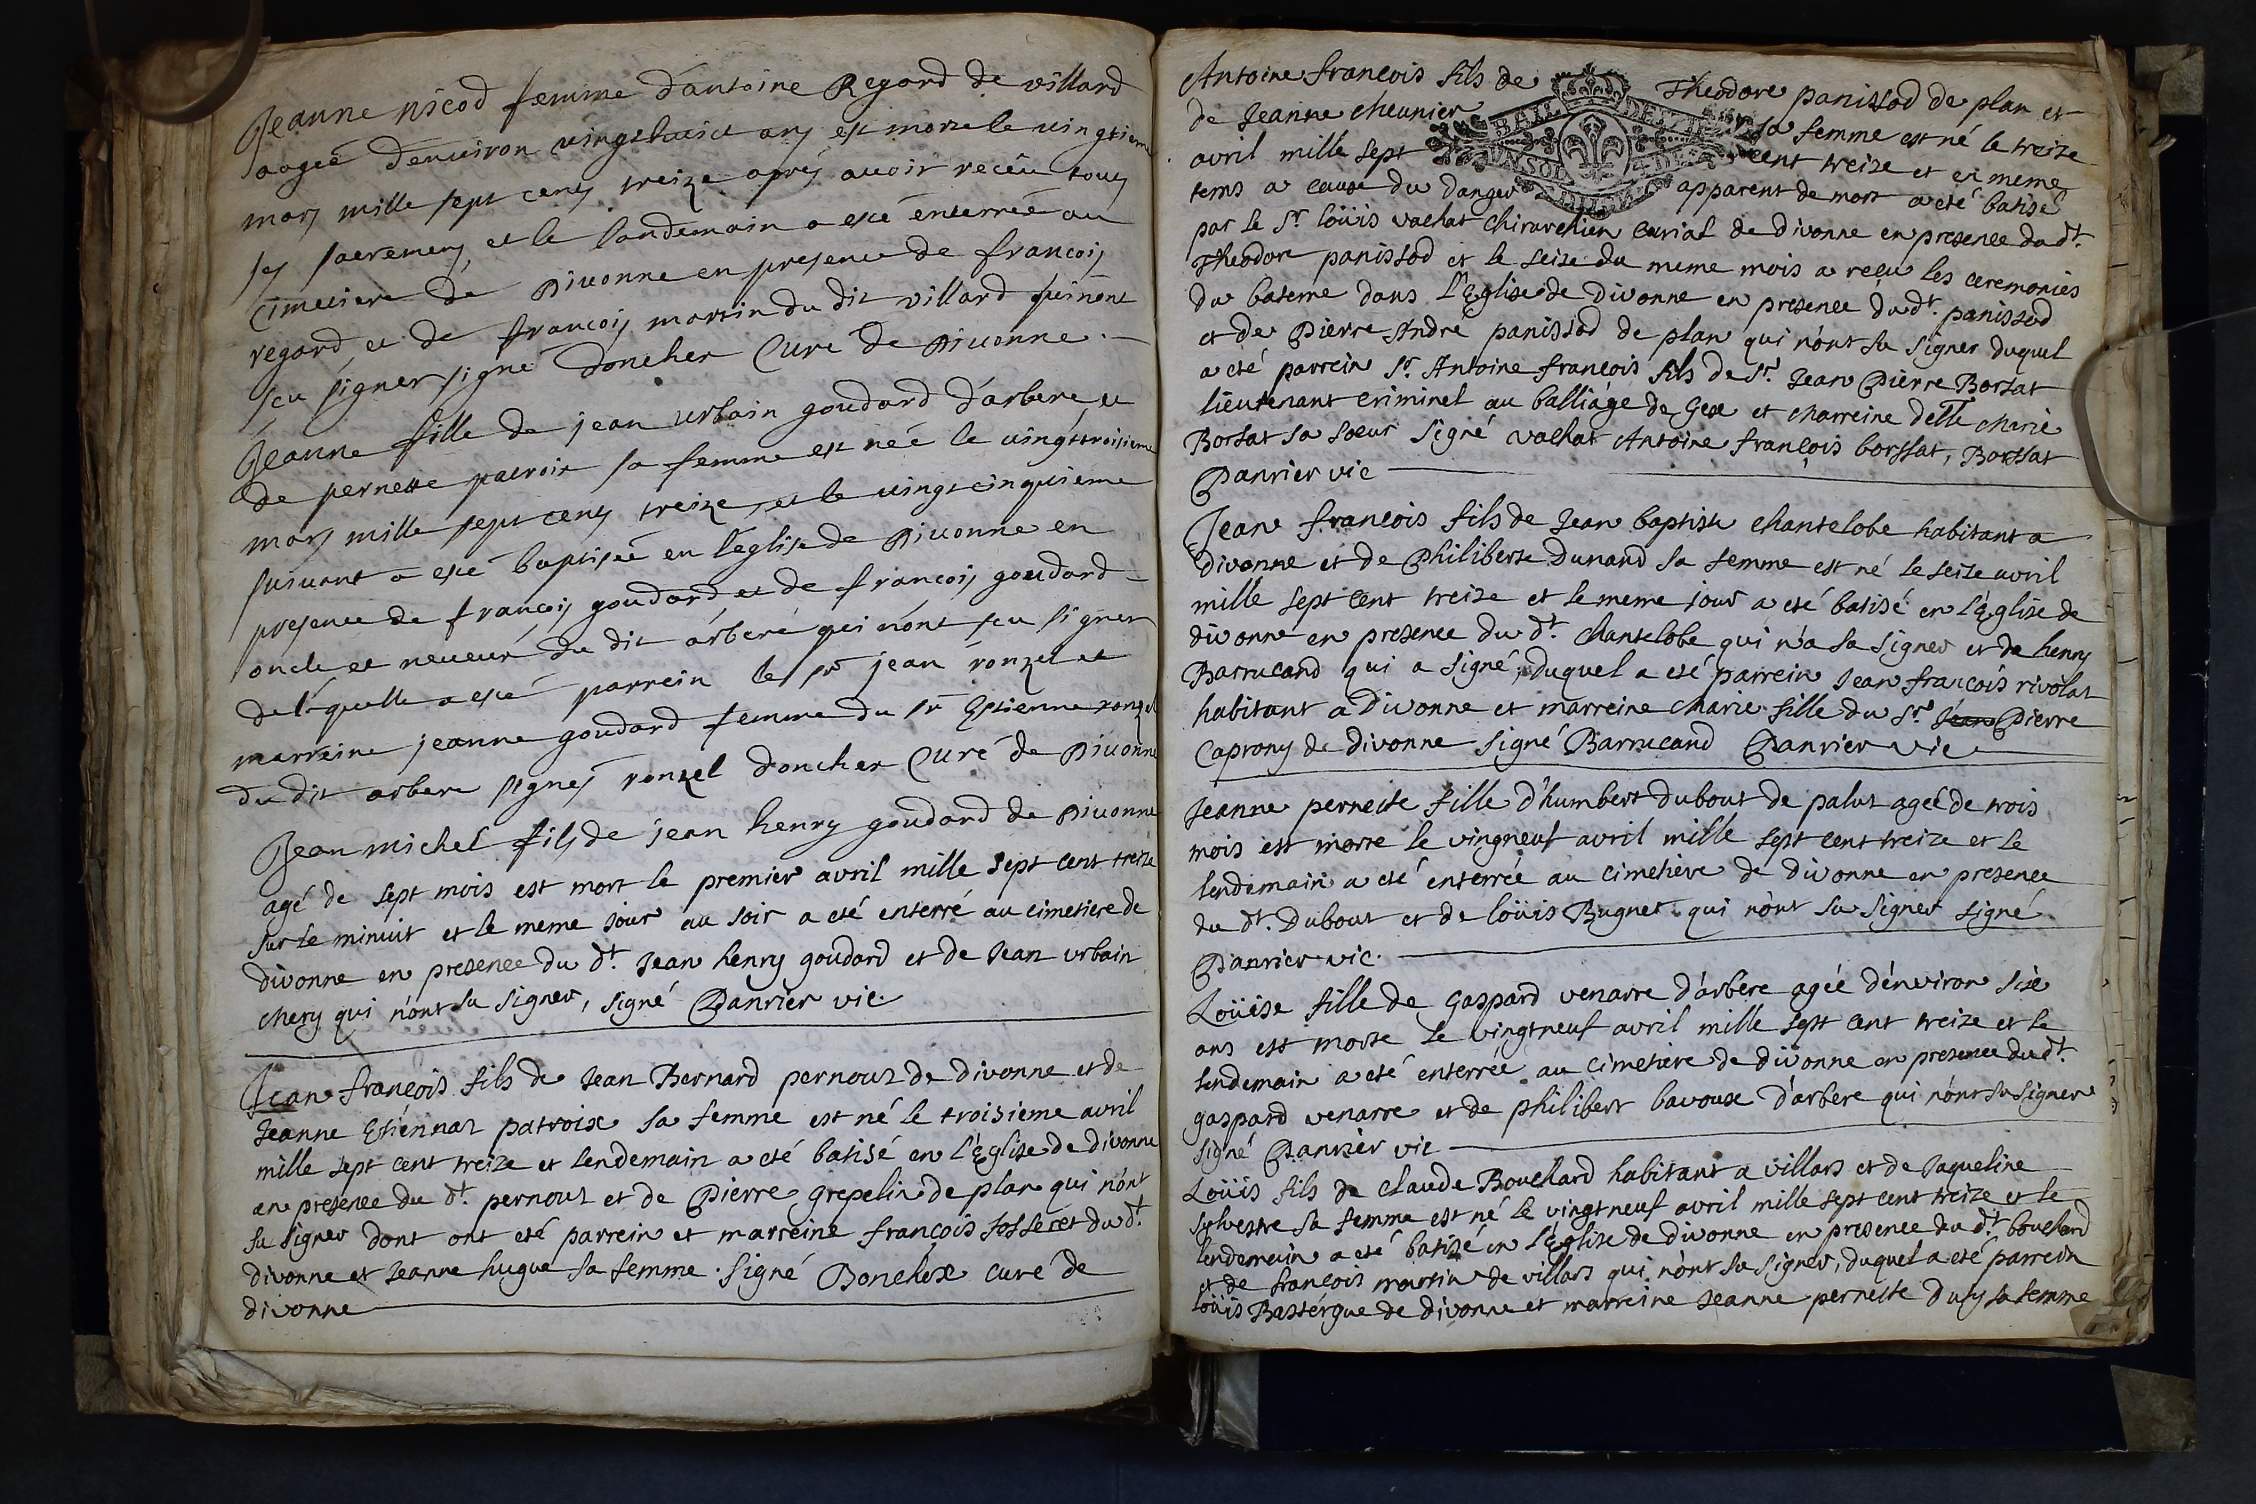 Jeanne nicod femme d'antoine Regard de villard
aagée d'enuiron vingthuict ans est morte le vingtieme
mars mille sept cens treize aprés auoir recéu tous
ses sacremens, et le landemain a esté enterrée au
cimetiere de Diuonne en presence de francois
regard, et de francois martin du dit villard qui n'ont
sceu signer signé Doncher Curé de Diuonne
Jeanne fille de jean urbain goudard d'arbere, et
de pernette patroix sa femme est née le vingttroisieme
mars mille sept cens treize, et le vingtcinquieme
suiuant a esté baptisée en l'église de Diuonne en
presence de francois goudard et de francois goudard
oncle et neueur du dit arbere qui n'ont sceu signer
de laquelle a esté parrein le sr jean ronzel et
marreine jeanne goudard femme du sr Estienne ronzel
du dit arbere signés ronzel Doncher Curé de Diuonne
Jean michel fils de jean henry goudard de Diuonne
agé de sept mois est mort le premier avril mille sept cent treize
sur le minuit et le meme jour au soir a eté enterré au cimetiere de
divonne en presence du dt. Jean henry goudard et de Jean urbain
chery qui n'ont su signer, signé Panrier vic.
Jean françois fils de Jean Bernard pernout de divonne et de
Jeanne Etiennaz patroix sa femme est né le troisieme avril
mille sept cent treize et lendemain a eté batisé en l'Eglise de divonne
en presence du dt. pernout et de Pierre grepelin de plan qui n'ont
su signer dont ont eté parrein et marreine françois josseret du dt.
divonne et Jeanne hugue sa femme. signé Doncher curé de
divonne
Antoine françois fils de Theodore panissod de plan et
de Jeanne cheunier sa femme est né le treize
BAIL DE
avril mille sept cent treize et en meme
tems a cause du danger apparent de mort a eté batisé
par le Sr. loüis vachat chirurchien curial de divonne en presence du dt.
Theodore panissod et le seize du meme mois a recu les ceremonies
du bateme dans l'Eglise de divonne en presence du dt. panissod
et de Pierre André panissod de plan qui n'ont su signer duquel
a eté parrein Sr. Antoine françois fils de Sr. Jean Pierre Borsat
lieutenant criminel au balliage de Gex et marreine delle marie
Borsat sa soeur signé vachat Antoine françois borssat, Borssat
Panrier vic
Jean françois fils de Jean baptiste chantelobe habitant a
divonne et de Philiberte Dunand sa femme est né le seize avril
mille sept cent treize et le meme jour a eté batisé en l'Eglise de
divonne en presence du dt. chantelobe qui n'a su signer et de henry
Barrucand qui a signé, duquel a eté parrein Jean françois rivolat
habitant a divonne et marreine marie fille du Sr. Jean Pierre
Caprony de divonne signé Barrucand Panrier vic
Jeanne pernette fille d'humbert dubout de palut ageé de trois
mois est morte le vingneuf avril mille sept cent treize et le
lendemain a eté enterrée au cimetière de divonne en presence
du dt. Dubout et de loüis Bugnet qui n'ont su signer signé
Panrier vic.
Loüise fille de Gaspard venarre d'arbere ageé d'environ six
ans est morte le vingtneuf avril mille sept cent treize et le
lendemain a eté enterrée au cimetiere de divonne en presence du dt.
gaspard venarre et de philibert bavoux d'arbere qui n'ont su signer
signé Panrier vic
Loüis fils de claude Bouchard habitant a villars et de Jaqueline
sylvestre sa femme est né le vingtneuf avril mille sept cent treize et le
lendemain a eté batizé en l'Eglise de divonne en presence du dt. bouchard
et de françois martin de villars qui n'ont su signer, duquel a eté parrein
loüis Bastérgue de divonne et marreine Jeanne pernette dufy sa femme